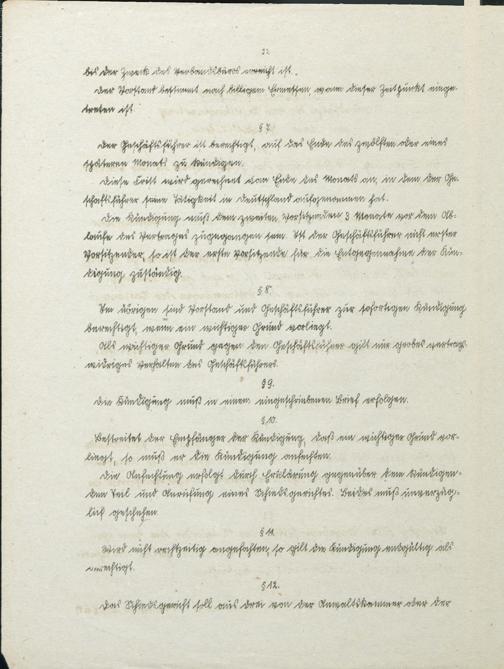 22
bis der Zweck des Verbandsbüros erreicht ist.
Der Vorstand bestimmt nach billigem Ermessen, wann dieser Zeitpunkt einge-
treten ist.
§ 7.
Der Geschäftsführer ist berechtigt, auf das Ende des zwölften oder eines
späteren Monats zu kündigen.
Diese Frist wird gerechnet vom Ende des Monats an, in dem der Ge-
schäftsführer seine Tätigkeit in Deutschland aufgenommen hat.
Die Kündigung muß dem zweiten Vorsitzenden 3 Monate vor dem Ab-
laufe des Vertrages zugegangen sein. Ist der Geschäftsführer nicht erster
Vorsitzender, so ist der erste Vorsitzende für die Entgegennahme der Kün-
digung zuständig.
§ 8.
Im übrigen sind Vorstand und Geschäftsführer zur sofortigen Kündigung
berechtigt, wenn ein wichtiger Grund vorliegt.
Als wichtiger Grund gegen den Geschäftsführer gilt nur grobes vertrags-
widriges Verhalten des Geschäftsführers.
§ 9.
Die Kündigung muß in einem eingeschriebenen Brief erfolgen.
§ 10.
Bestreitet der Empfänger der Kündigung, daß ein wichtiger Grund vor-
liegt, so muß er die Kündigung anfechten.
Die Anfechtung erfolgt durch Erklärung gegenüber dem kündigen-
den Teil und Anrufung eines Schiedsgerichtes. Beides muß unverzüg-
lich geschehen.
§ 11.
Wird nicht rechtzeitig angefochten, so gilt die Kündigung endgültig als
berechtigt.
§ 12.
Das Schiedsgericht soll aus drei von der Anwaltskammer oder der